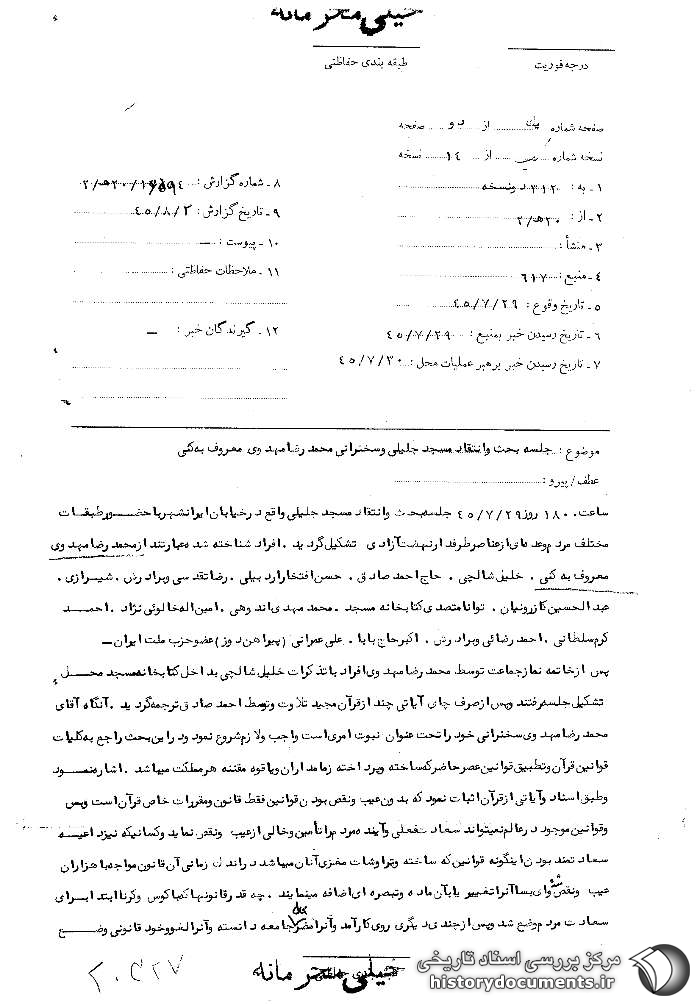 خیلی محرمانه
درجه فوریت
طبقه بندی حفاظتی
صفحه شماره یک از دو صفحه
نسخه شماره از ۱۴ نسخه
۱ - به : ۳۱۲ دونسخه
۲ - از : ۲۰ه‍ ۳۰
۳ - منشأ :
۴ - منبع : ۶۱۷
۵ - تاریخ وقوع : ۴۵/۷/۲۹
۶ - تاریخ رسیدن خبر بمنبع : ۴۵/۷/۲۹
۷ - تاریخ رسیدن خبر برهبر عملیات محل : ۴۵/۷/۳۰
۸ - شماره گزارش :
۹ - تاریخ گزارش : ۴۵/۸/۲
۱۰ - پیوست : —
۱۱ - ملاحظات حفاظتی :
۱۲ - گیرندگان خبر : —
موضوع : جلسه بحث وانتقاد مسجد جلیلی وسخنرانی محمد رضا مهدوی معروف به کنی
عطف / پیرو :
ساعت ۱۸۰۰ روز ۴۵/۷/۲۹ جلسه بحث وانتقاد مسجد جلیلی واقع درخیابان ایرانشهر با حضور طبقات
مختلف مردم وعده ای از عناصر طرفدار نهضت آزادی تشکیل گردید . افراد شناخته شده عبارتند از محمد رضا مهدوی
معروف به کنی . خلیل شالچی . حاج احمد صادق . حسن افتخار اردبیلی . رضا تقدسی وبرادرش . شیرازی .
عبدالحسین کازرونیان . توانا متصدی کتابخانه مسجد . محمد مهدی اندوهی . امین اله خالوئی نژاد . احمد
کرم سلطانی . احمد رضائی وبرادرش . اکبر حاج بابا . علی عمرانی (پیراهن دوز) عضو حزب ملت ایران —
پس از خاتمه نماز جماعت توسط محمد رضا مهدوی افراد با تذکرات خلیل شالچی بداخل کتابخانه مسجد محل
تشکیل جلسه رفتند وپس از صرف چای آیاتی چند از قرآن مجید تلاوت وتوسط احمد صادق ترجمه گردید . آنگاه آقای
محمد رضا مهدوی سخنرانی خود را تحت عنوان نبوت امری است واجب ولازم شروع نمود ودر این بحث راجع به کلیات
قوانین قرآن وتطبیق قوانین عصر حاضر که ساخته وپرداخته زمامداران ویاقوه مقننه هر مملکت میباشد . اشاره نمود
وطبق اسناد وآیاتی از قرآن اثبات نمود که بدون عیب ونقص بودن قوانین فقط قانون ومقررات خاص قرآن است وبس
وقوانین موجود در عالم نمیتواند سعادت فعلی وآینده مردم را تأمین وخالی از عیب ونقص نماید وکسانیکه نیز داعیه
سعادتمند بودن اینگونه قوانین که ساخته وتراوشات مغزی آنان میباشد دارند از آن زمانی آن قانون مواجه با هزاران
عیب ونقص شده وای بسا آنرا تغییر یا بآن ماده وتبصره ای اضافه مینمایند . چه قدر قانونها که با کوس وکرنا ابتدا برای
سعادت مردم وضع شد وپس از چندی دیگری روی کار آمد وآنرا مضر بحال جامعه دانسته وآنرا لغو وخود قانونی وضع
خیلی محرمانه
۲۰۴۲۷
مرکز بررسی اسناد تاریخی
historydocuments.ir